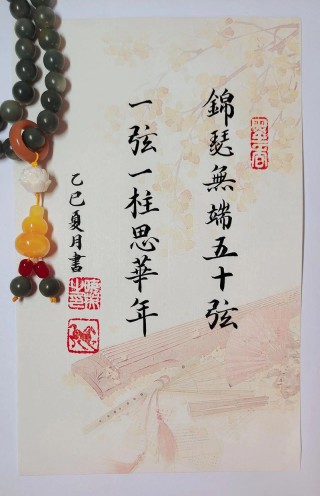 錦瑟無端五十弦
一弦一柱思華年
乙巳夏月書